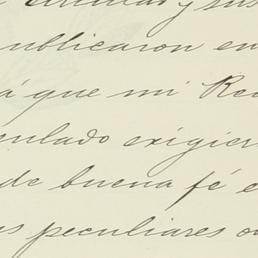 y sus
ublicaron en
á que mi Rea
enlado exigier
de buena fé e
as peculiares o